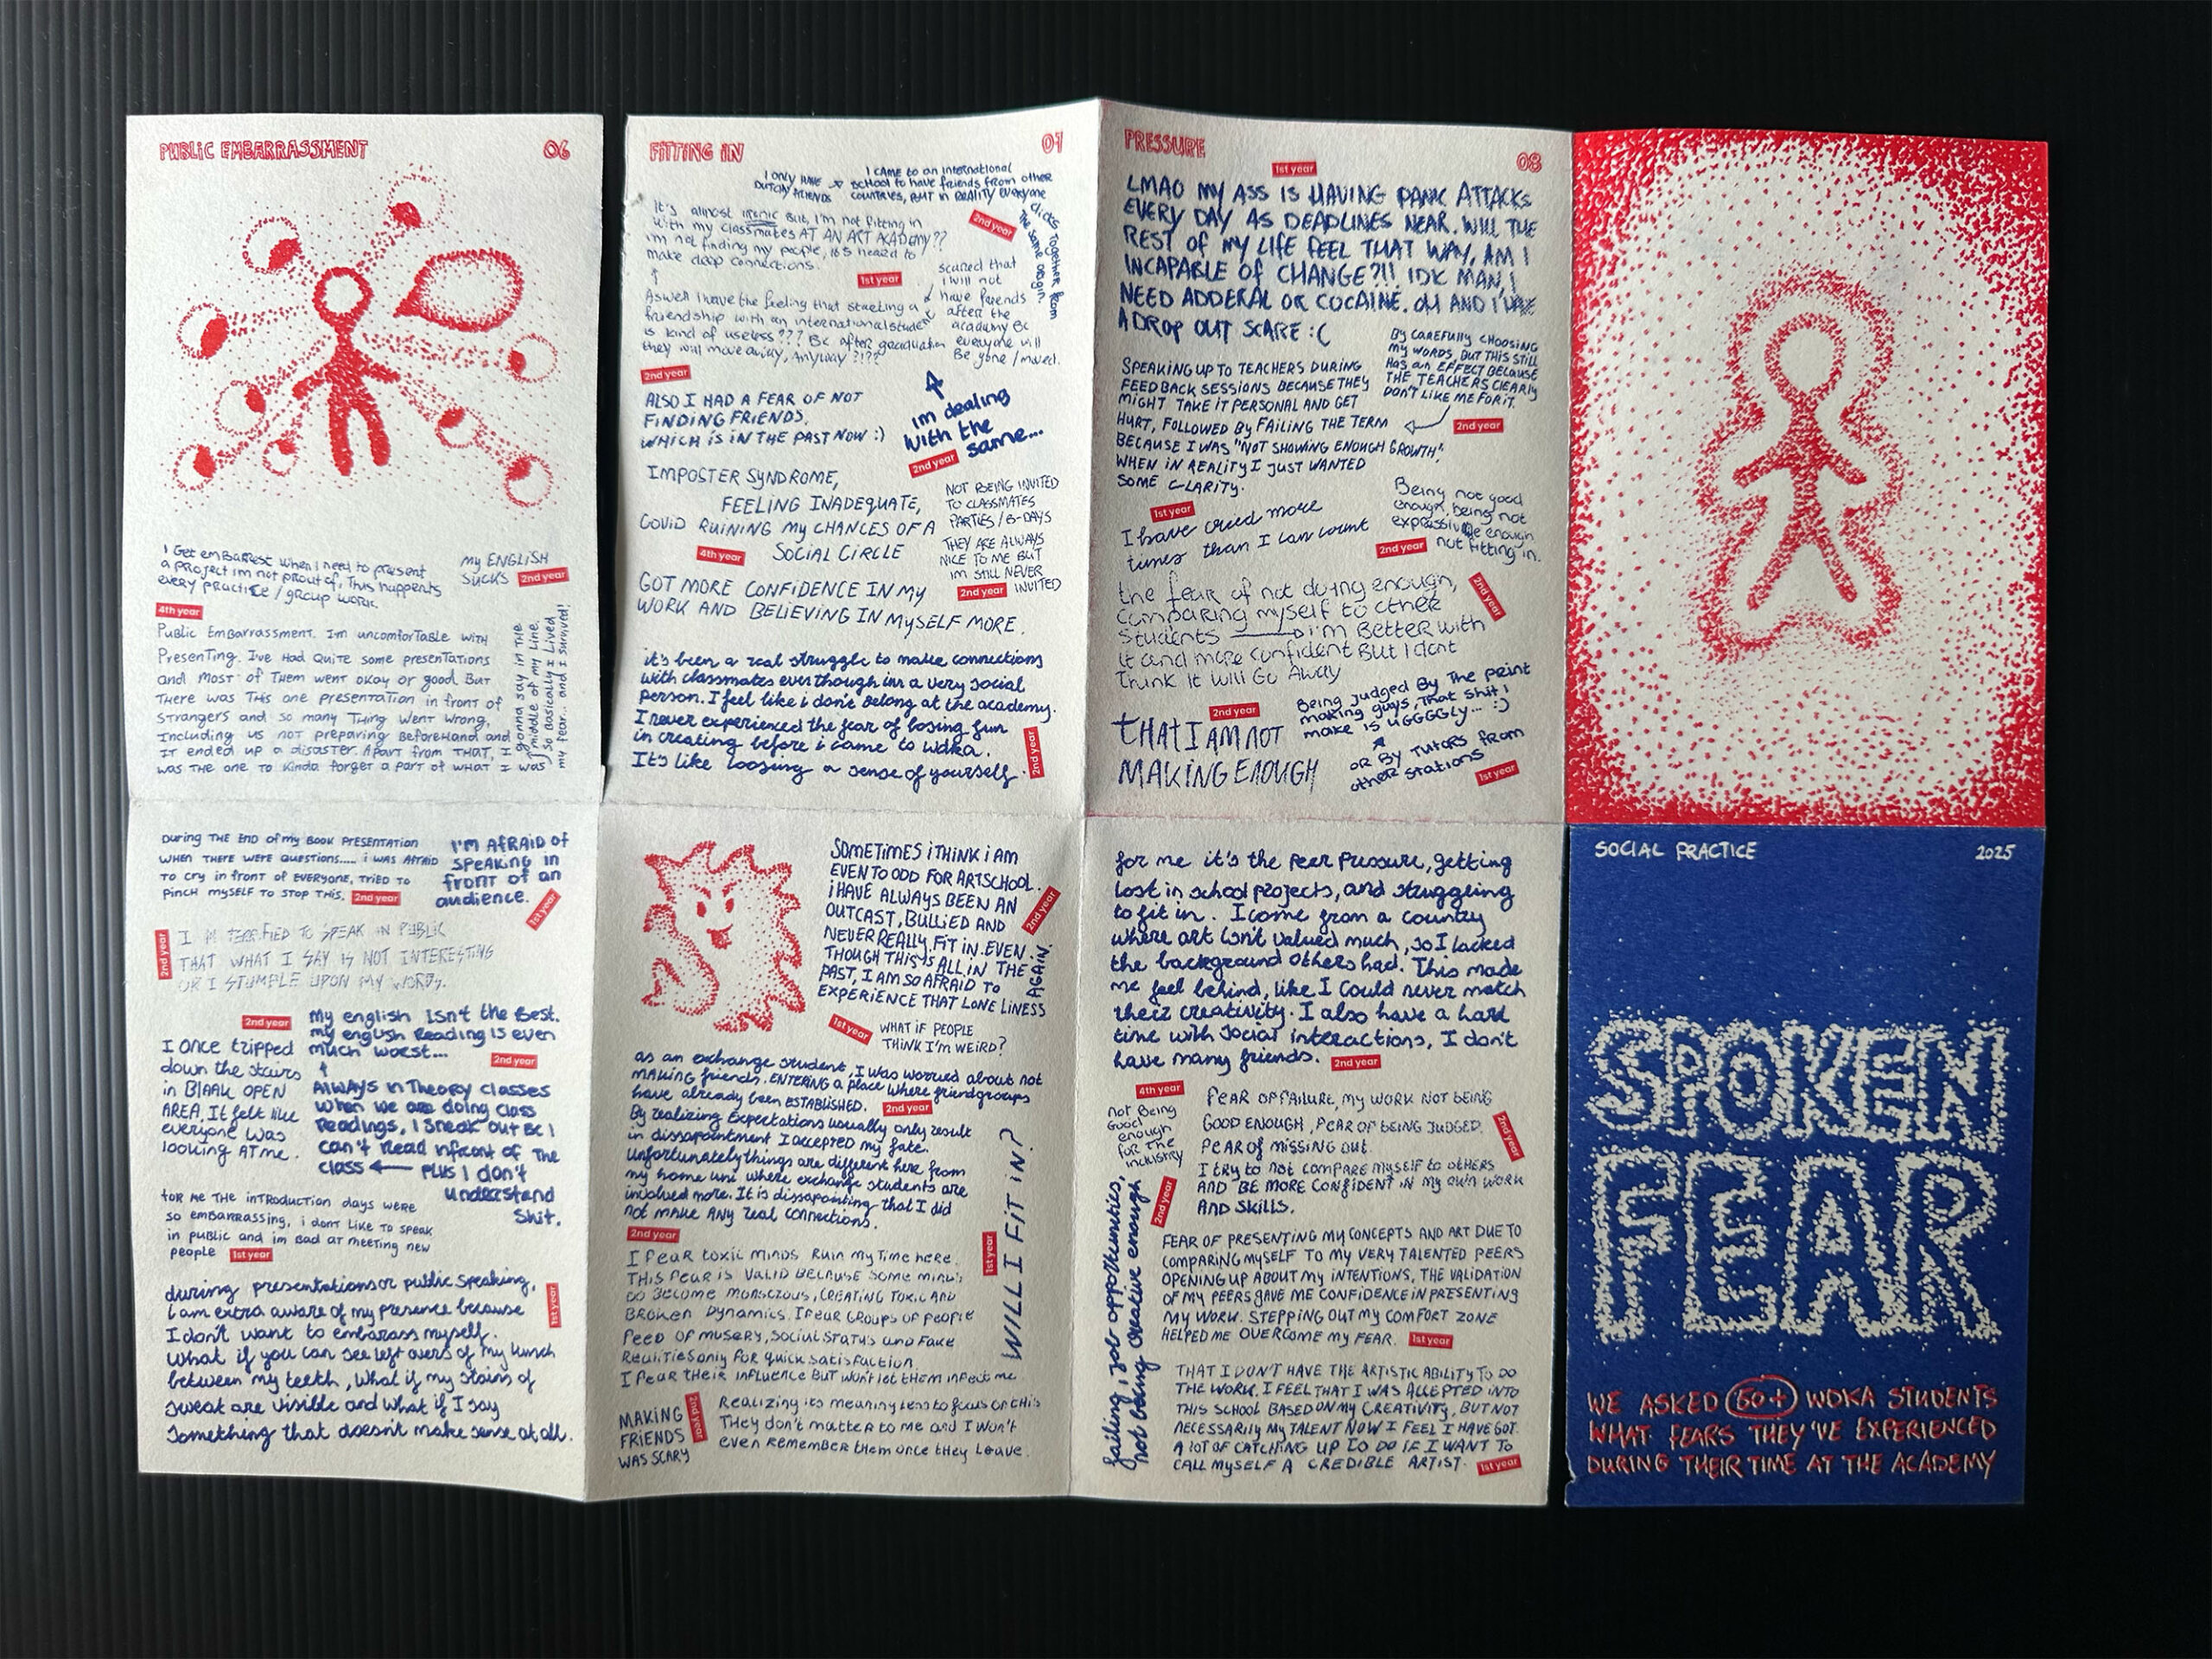 PUBLIC EMBARRASSMENT
06
I Get emBARREST when I need to present
a project im not prout of. This happents
every practice / group work.
4th year
my ENGLISH
SUCKS
2nd year
Public Embarrassment. I'm uncomfortable with
Presenting. I've Had Quite some presentations
and most of them went okay or good. But
There was this one presentation in front of
strangers and so many Thing went wrong,
Including us not preparing Beforehand and
IT ended up a disaster. Apart from THAT, I
was THE one to kinda forget a part of what I was
gonna say in THE
middle of my line.
So Basically I Lived
my fear... and I survived!
During THE END of my BOOK PRESENTATION
WHEN THERE WERE QUESTIONS..... i WAS AFRAID
TO cry in front of EVERYONE, TRIED TO
PINCH MYSELF TO STOP THIS.
2nd year
I'M AFRAID OF
SPEAKING IN
front OF an
audience.
1st year
2nd year
I M TERRIFIED TO SPEAK IN PUBLIC
THAT WHAT I SAY IS NOT INTERESTING
OR I STUMBLE UPON MY WORDS.
2nd year
I once tripped
down the stairs
in BLAAK OPEN
AREA. It felt like
everyone was
looking AT me.
my english Isn't the Best.
my english Reading is even
much worst...
2nd year
Always in Theory classes
when we are doing class
readings, I sneak out BC I
can't Read infront of The
class
plus I don't
understand
Shit.
for me THE introduction days were
so embarrassing, i dont like to speak
in public and im Bad at meeting new
people
1st year
during presentations or public speaking,
I am extra aware of my presence because
I don't want to embarass myself.
What if you can see left overs of my lunch
between my teeth, What if my stains of
sweat are visible and what if I say
something that doesn't make sense at all.
1st year
FITTING IN
07
I ONLY HAVE
DUTCH FRIENDS
I CAME to an international
school to have friends from other
countries, BUT in REALITY everyone
clicks together from
the same origin.
2nd year
It's almost ironic But, I'm not fitting in
with my classmates AT AN ART ACADEMY??
I'm not finding my people, it's heard to
make deep connections.
1st year
Aswell I have the feeling that starting a
friendship with an international student
is kind of useless??? Bc after graduation
they will move away, Anyway?!??
2nd year
scared that
i will not
have friends
after the
academy Bc
everyone will
Be gone / moved.
im dealing
with the
same...
2nd year
ALSO I HAD A FEAR OF NOT
FINDING FRIENDS.
WHICH IS IN THE PAST NOW :)
IMPOSTER SYNDROME,
FEELING INADEQUATE,
COVID RUINING my CHANCES OF A
SOCIAL CIRCLE
4th year
NOT BEING INVITED
TO CLASSMATES
PARTIES / B-DAYS
THEY ARE ALWAYS
NICE TO ME BUT
IM STILL NEVER
INVITED
2nd year
GOT MORE CONFIDENCE IN My
WORK AND BELIEVING IN MySELF MORE.
it's been a real struggle to make connections
with classmates eventhough im a very social
person. I feel like i don't Belong at the academy.
I never experienced the fear of losing fun
in creating before i came to wdka.
It's like loosing a sense of yourself.
2nd year
SOMETIMES i THINK i AM
EVEN TO ODD FOR ARTSCHOOL.
i HAVE ALWAYS BEEN AN
OUTCAST, BULLIED AND
NEVER REALLY FIT IN. EVEN
THOUGH THIS IS ALL IN THE
PAST, I AM SO AFRAID TO
EXPERIENCE THAT LONELINESS
AGAIN.
2nd year
1st year
WHAT IF PEOPLE
THINK I'M WEIRD?
as an exchange student, I was worried about not
MAKING friends. ENTERING a place where friendgroups
have already been ESTABLISHED.
2nd year
By realizing Expectations usually only result
in dissapointment I accepted my fate.
Unfortunately things are different here from
my home uni where exchange students are
involved more. It is dissapointing that I did
not make ANY real connections.
2nd year
I fear toxic minds ruin my time here.
THIS fear is valid BECAUSE some minds
DO Become monstrous, CREATING TOXIC AND
BROKEN DYNAMICS. I fear Groups of people
feed of misery, social status and fake
Realities only for quick satisfaction.
I fear their influence BUT won't let them infect me.
1st year
WILL I FIT IN?
MAKING
FRIENDS
WAS SCARY
2nd year
Realizing its meaningless to focus on this
THEY don't matter to me and I won't
even Remember them once they Leave.
PRESSURE
08
1st year
LMAO MY ASS IS HAVING PANIC ATTACKS
EVERY DAY AS DEADLINES NEAR. WILL THE
REST OF MY LIFE FEEL THAT WAY, AM I
INCAPABLE OF CHANGE?!! IDK MAN, I
NEED ADDERAL OR COCAINE. OH AND I HAVE
A DROP OUT SCARE :(
SPEAKING UP TO TEACHERS DURING
FEEDBACK SESSIONS BECAUSE THEY
MIGHT TAKE IT PERSONAL AND GET
HURT, FOLLOWED BY FAILING THE TERM
BECAUSE I WAS "NOT SHOWING ENOUGH GROWTH",
WHEN IN REALITY I JUST WANTED
SOME CLARITY.
By CAREFULLY CHOOSING
My WORDS, BUT THIS STILL
HAS an EFFECT BECAUSE
THE TEACHERS CLEARLY
DON'T LIKE ME FOR IT.
2nd year
1st year
I have cried more
times than I can count
Being not good
enough, being not
expressive enough
not fitting in.
2nd year
the fear of not doing enough,
comparing myself to other
students
i'm Better with
it and more confident But I dont
Think It will Go Away
2nd year
2nd year
THAT I AM NOT
MAKING ENOUGH
Being judged By the print
making guys, That shit I
make is UGGGGLY... :)
OR By TUTORS from
other stations
1st year
for me it's the peer pressure, getting
lost in school projects, and struggling
to fit in. I come from a country
where art isn't valued much, so I lacked
the background others had. This made
me feel behind, like I could never match
their creativity. I also have a hard
time with social interactions, I don't
have many friends.
2nd year
4th year
not Being
Good
enough
for the
industry
FEAR OF FAILURE, my WORK NOT BEING
GOOD ENOUGH, FEAR OF BEING JUDGED.
FEAR of MISSING OUT.
I try to not compare myself to others
AND BE MORE CONFIDENT IN my own work
AND SKILLS.
2nd year
failing, job opportunities,
not being creative enough
2nd year
FEAR OF PRESENTING MY CONCEPTS AND ART DUE TO
COMPARING MYSELF TO MY VERY TALENTED PEERS
OPENING UP ABOUT MY INTENTIONS, THE VALIDATION
OF MY PEERS GAVE ME CONFIDENCE IN PRESENTING
MY WORK. STEPPING OUT MY COMFORT ZONE
HELPED ME OVERCOME MY FEAR.
1st year
THAT I DON'T HAVE THE ARTISTIC ABILITY TO DO
THE WORK. I FEEL THAT I WAS ACCEPTED INTO
THIS SCHOOL BASED ON MY CREATIVITY, BUT NOT
NECESSARILY MY TALENT NOW I FEEL I HAVE GOT
A LOT OF CATCHING UP TO DO IF I WANT TO
CALL MYSELF A CREDIBLE ARTIST.
1st year
SOCIAL PRACTICE
2025
SPOKEN
FEAR
WE ASKED 50+ WDKA STUDENTS
WHAT FEARS THEY'VE EXPERIENCED
DURING THEIR TIME AT THE ACADEMY